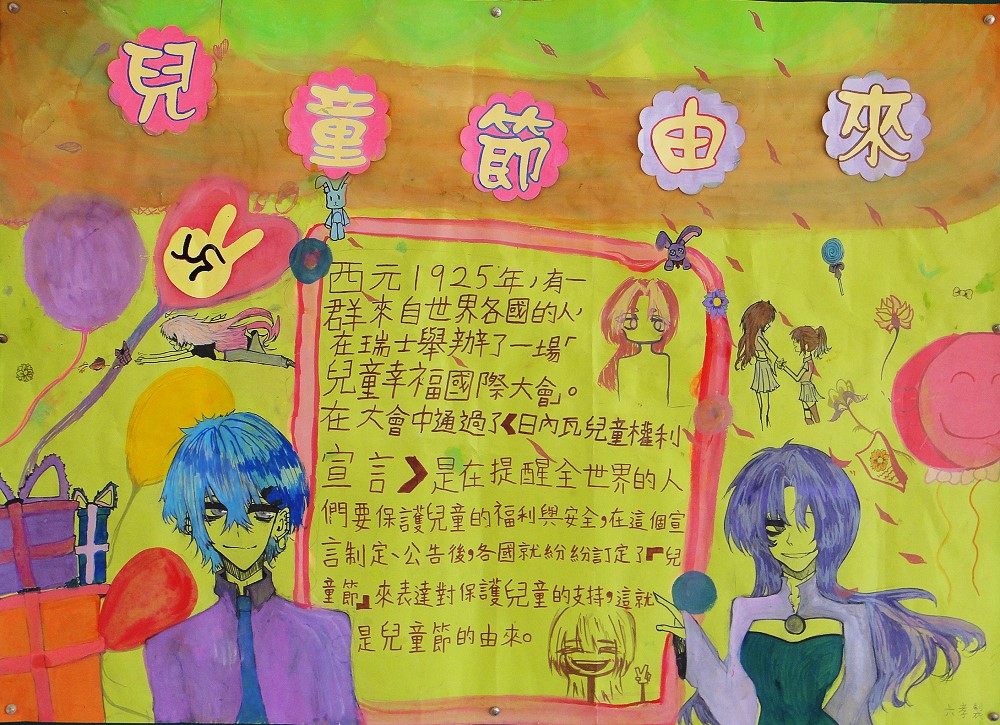 兒童節由來
西元1925年，有一
群來自世界各國的人，
在瑞士舉辦了一場「
兒童幸福國際大會」。
在大會中通過了《日內瓦兒童權利
宣言》是在提醒全世界的人
們要保護兒童的福利與安全，在這個宣
言制定、公告後，各國就紛紛訂定了『兒
童節』來表達對保護兒童的支持，這就
是兒童節的由來。
六孝製